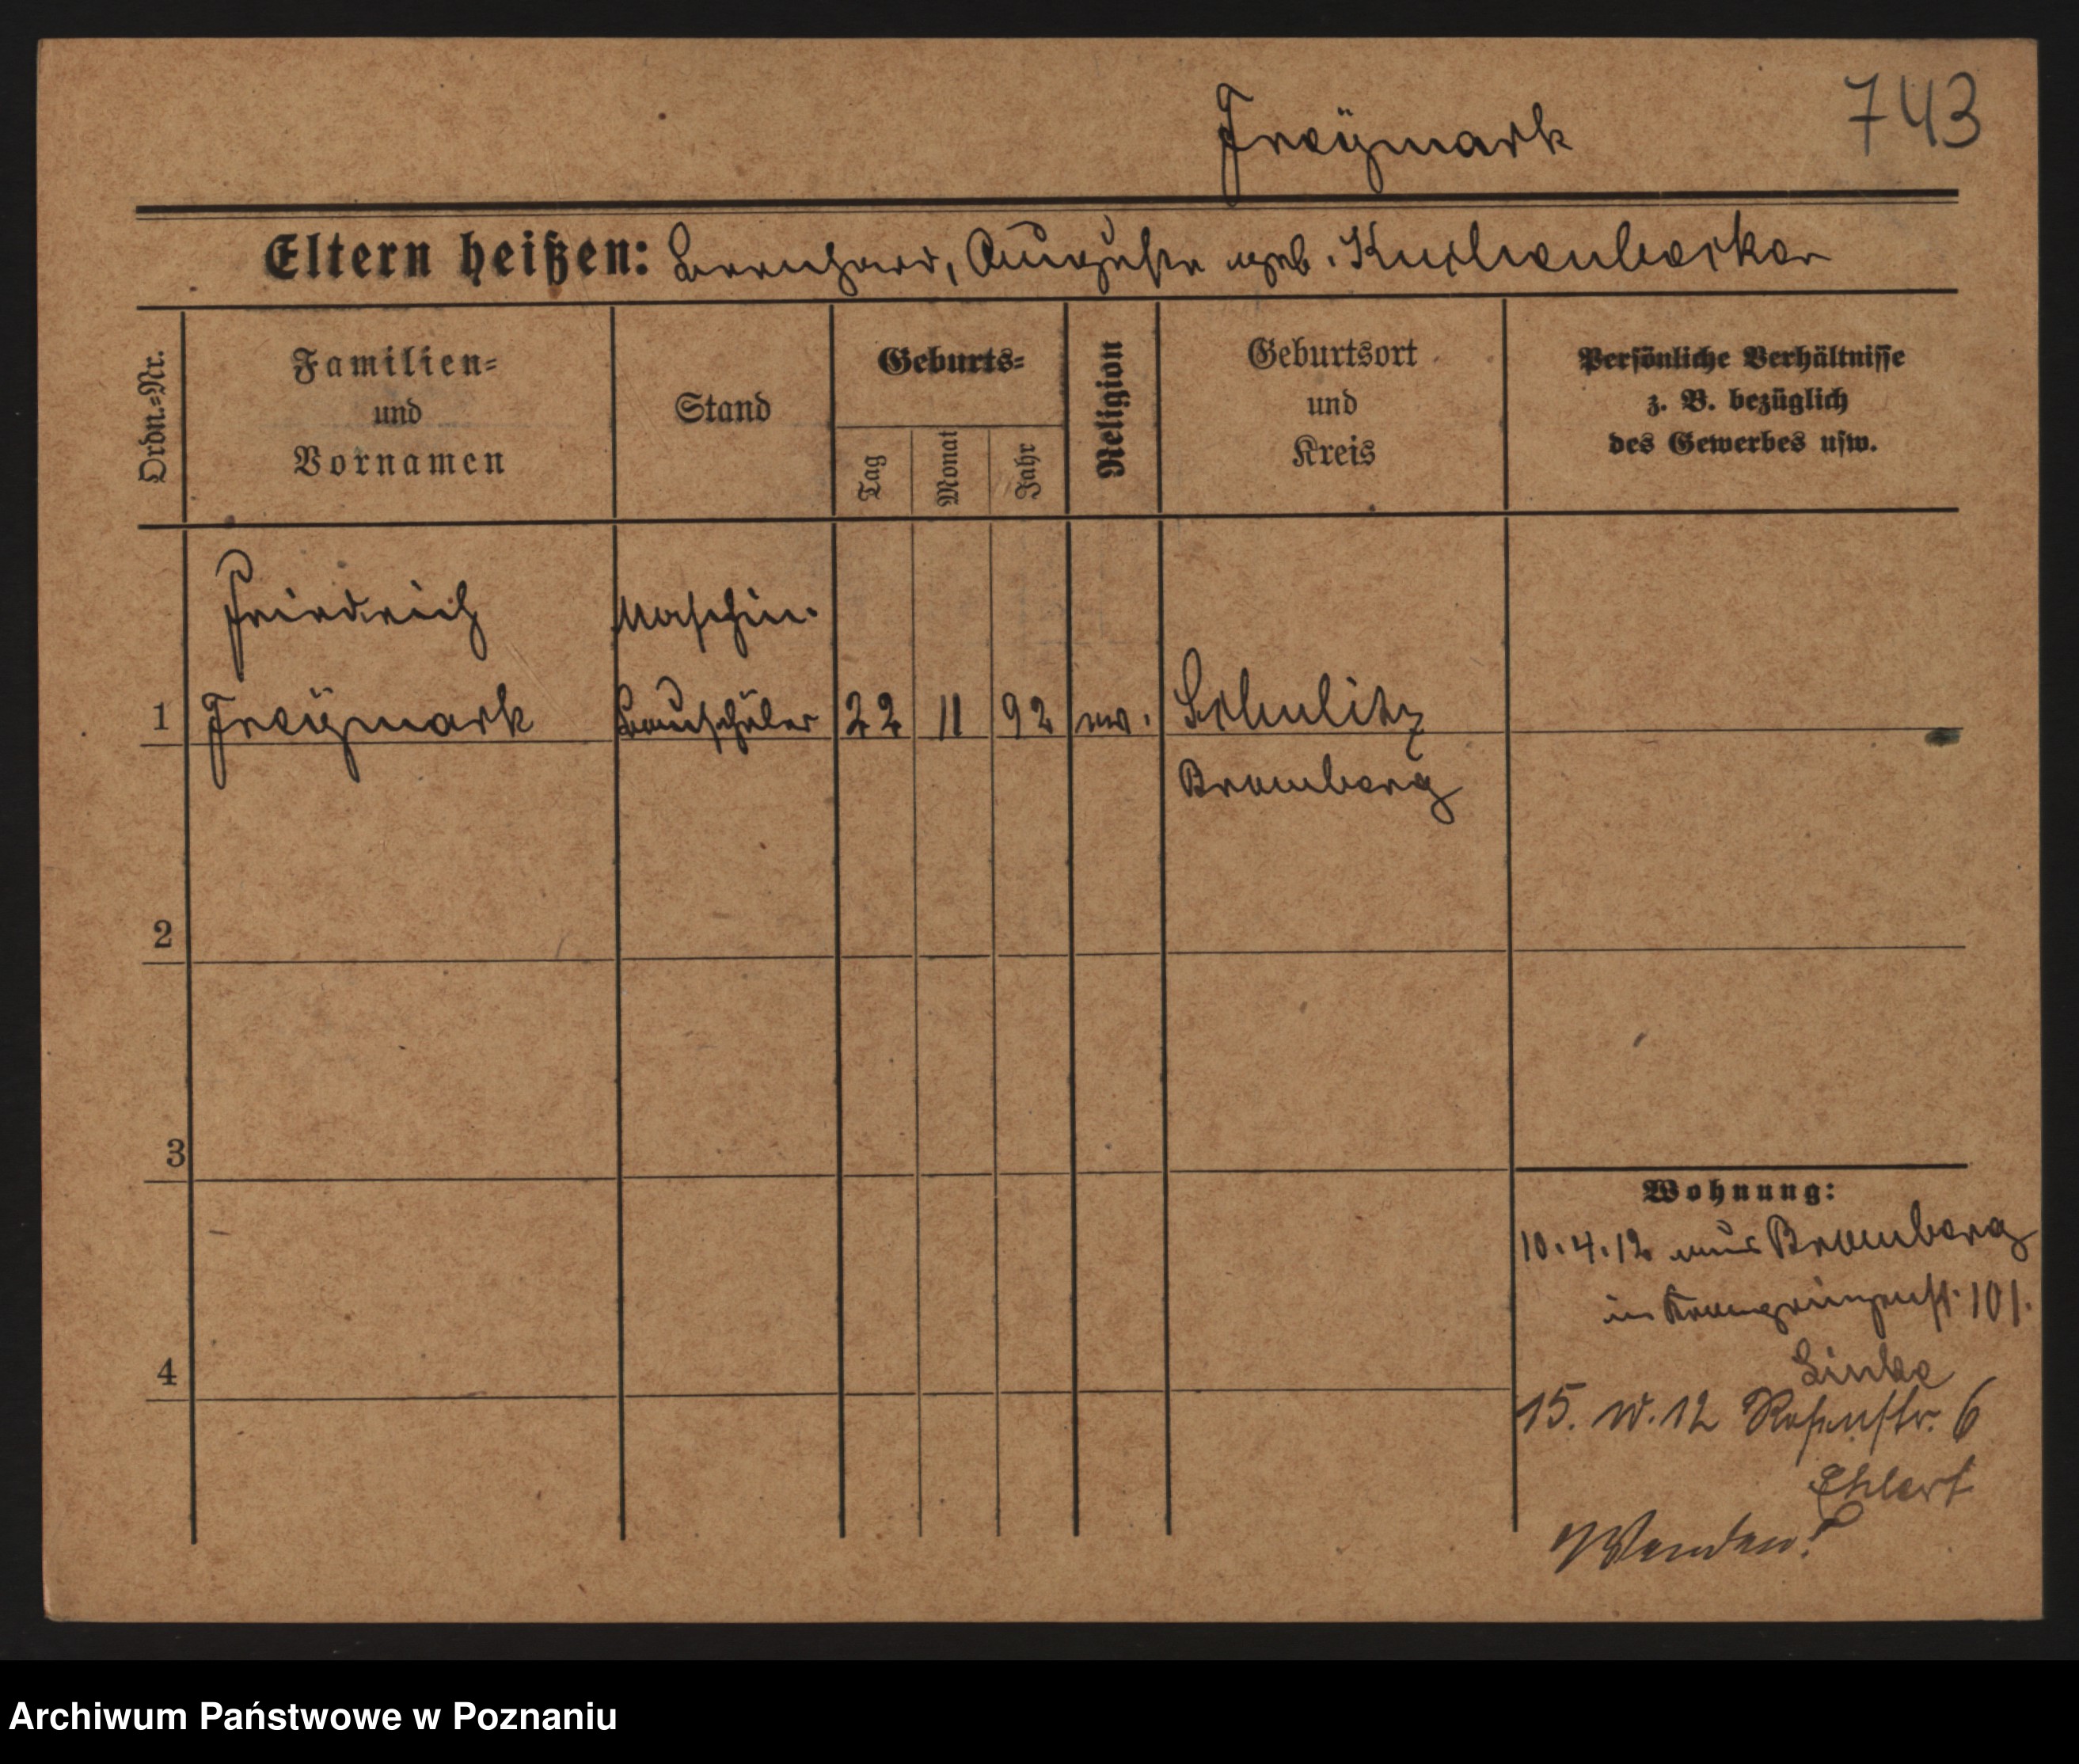 743
Freymark
Eltern heißen: Bernhard, Auguste geb. Kuchenbecker
Ordn.=Nr.
Familien=
und
Vornamen
Stand
Geburts=
Tag
Monat
Jahr
Religion
Geburtsort
und
Kreis
Persönliche Verhältnisse
z. B. bezüglich
des Gewerbes usw.
Friedrich Maschin.
1 Freymark bauschüler 22 11 92 ev. Schulitz
Bromberg
2
3
4
Wohnung:
10.4.12 aus Bromberg
in Kronprinzenst. 101.
Linke
15. IV. 12 Rosenstr. 6
Ehlert
Wenden!
Archiwum Państwowe w Poznaniu